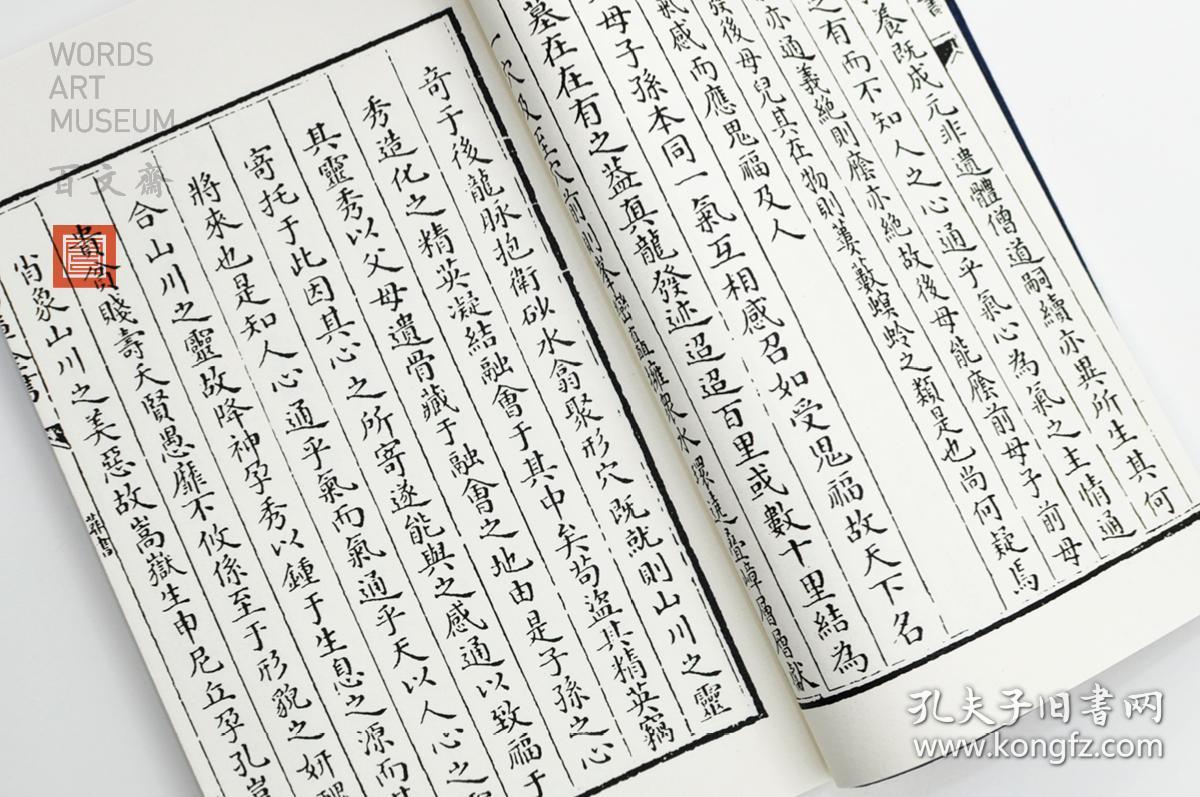 養既成元非遺體僧道嗣續亦異所生其何
之有而不知人之心通乎氣心為氣之主情通
亦通義絶則廕亦絶故後母能廕前母子前母
發後母兒其在物則蔞藪螟蛉之類是也尚何疑焉
氣感而應鬼福及人
母子孫本同一氣互相感召如受鬼福故天下名
墓在在有之蓋真龍發迹迢迢百里或數十里結為
一穴及至穴前則峯巒矗擁眾水環遶疊嶂層層獻
奇于後龍脉抱衛砂水翕聚形穴既就則山川之靈
秀造化之精英凝結融會于其中矣苟盜其精英竊
其靈秀以父母遺骨藏于融會之地由是子孫之心
寄托于此因其心之所寄遂能與之感通以致福于
將來也是知人心通乎氣而氣通乎天以人心之
合山川之靈故降神孕秀以鍾于生息之源而其
貴貧賤壽夭賢愚靡不攸係至于形貌之妍醜
肖象山川之美惡故嵩嶽生申尼丘孕孔豈
全書
葬書
WORDS
ART
MUSEUM
百文齋
孔夫子旧书网
www.kongfz.com